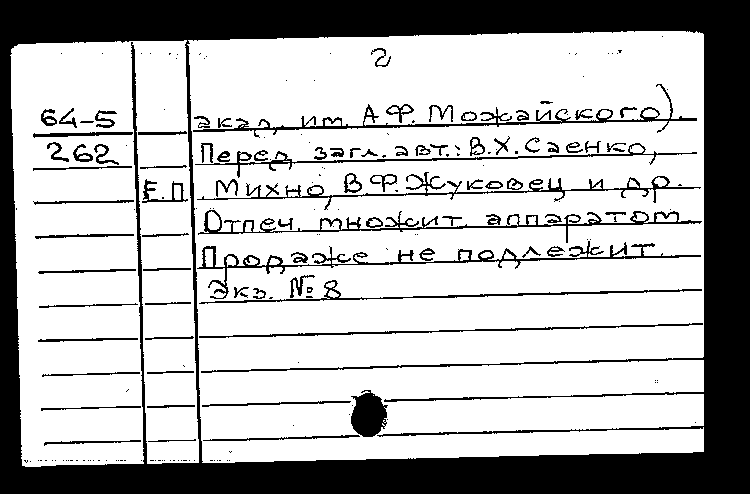 2
64-5 акад. им. А.Ф. Можайского).
262 Перед загл. авт.: В.Х. Саенко,
Е.П. Михно, В.Ф. Жуковец и др.
Отпеч. множит. аппаратом.
Продаже не подлежит.
Экз. № 8